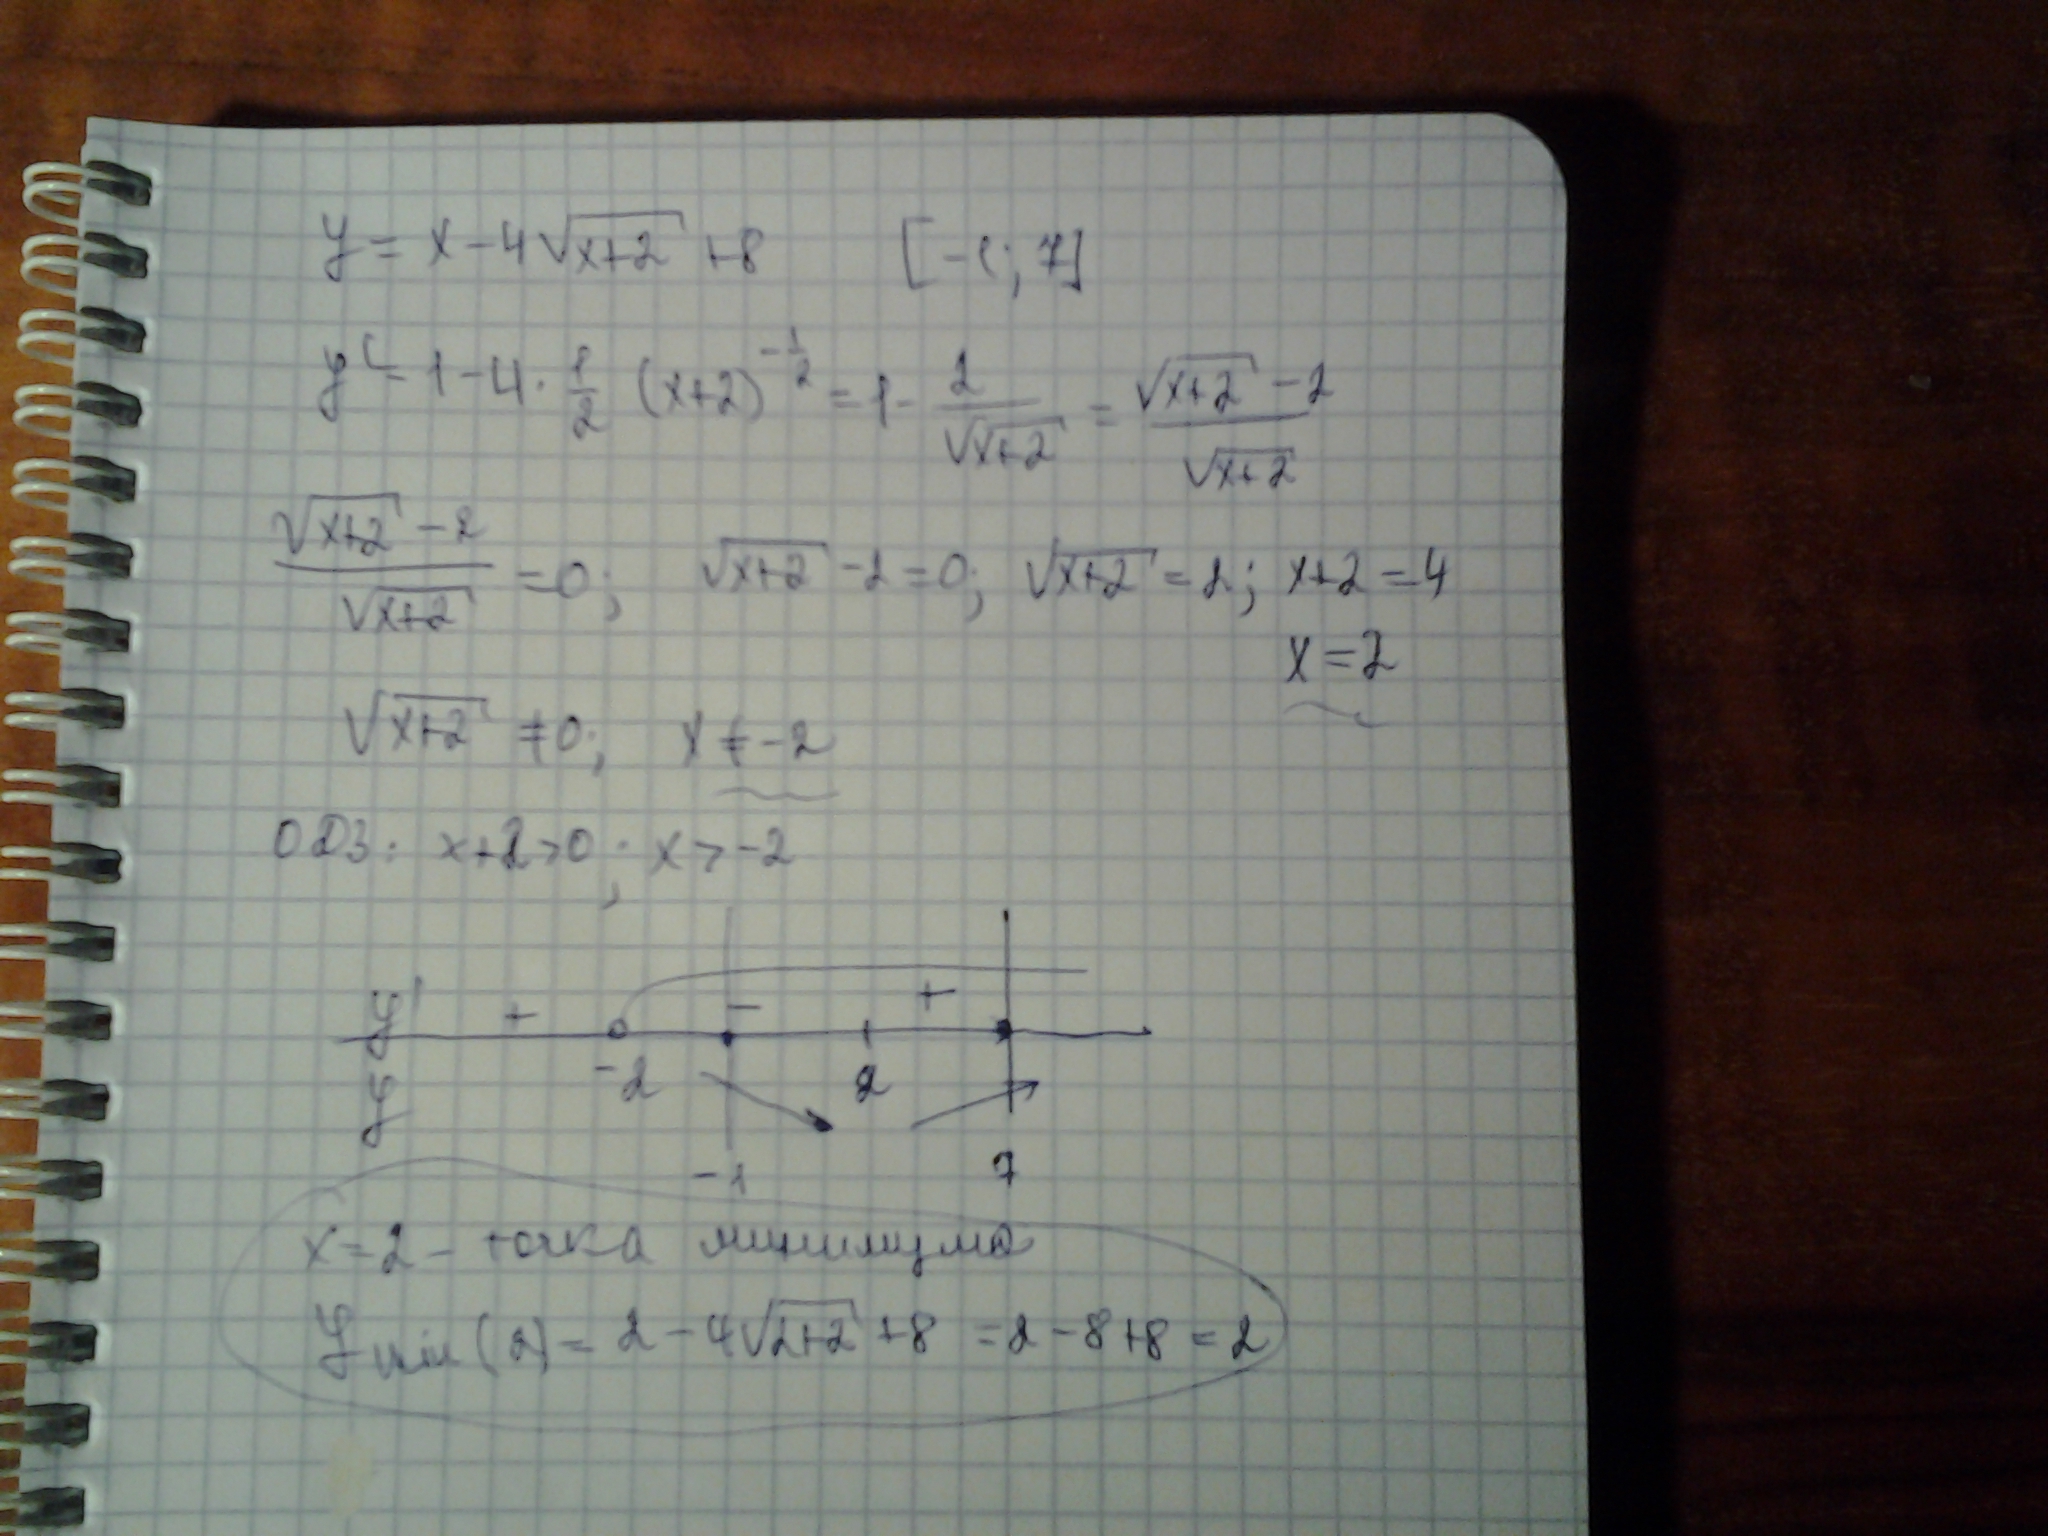 y = x - 4√(x+2) + 8 [-1; 7]
y' = 1 - 4 · 1/2 (x+2)^(-1/2) = 1 - 2/√(x+2) = (√(x+2) - 2)/√(x+2)
(√(x+2) - 2)/√(x+2) = 0; √(x+2) - 2 = 0; √(x+2) = 2; x+2 = 4
x = 2
√(x+2) ≠ 0; x ≠ -2
ОДЗ: x+2>0; x > -2
y' + - +
y -2 2
-1 7
x = 2 - точка минимума
y min (2) = 2 - 4√(2+2) + 8 = 2 - 8 + 8 = 2